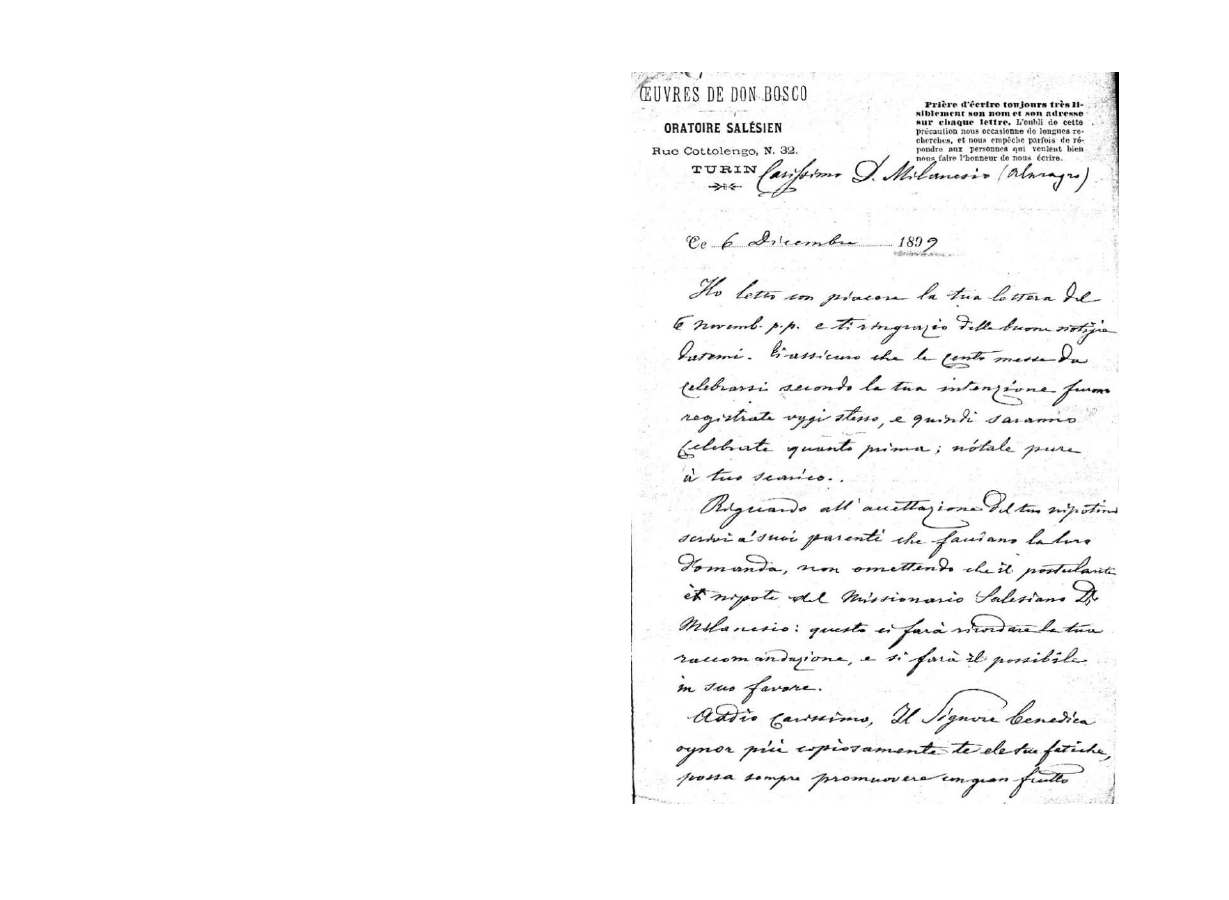 ŒUVRES DE DON BOSCO
ORATOIRE SALÉSIEN
Rue Cottolengo, N. 32.
TURIN
Prière d'écrire toujours très li-
siblement son nom et son adresse
sur chaque lettre. L'oubli de cette
précaution nous occasionne de longues re-
cherches, et nous empêche parfois de ré-
pondre aux personnes qui veulent bien
nous faire l'honneur de nous écrire.
Carissimo D. Milanesio (Almagro)
Ce 6 Dicembre 1899
Ho letto con piacere la tua lettera del
6 novemb. p.p. e ti ringrazio delle buone notizie
datemi. Ti assicuro che le cento messe da
celebrarsi secondo la tua intenzione furono
registrate oggi stesso, e quindi saranno
celebrate quanto prima; nótale pure
à tuo scarico..
Riguardo all'accettazione del tuo nipotino
scrivi a' suoi parenti che facciano la loro
domanda, non omettendo che il postulante
è nipote del Missionario Salesiano D.
Milanesio: questo ci farà ricordare la tua
raccomandazione, e si farà il possibile
in suo favore.
Addio carissimo, Il Signore benedica
ognor più copiosamente te e le tue fatiche,
possa sempre promuovere con gran frutto